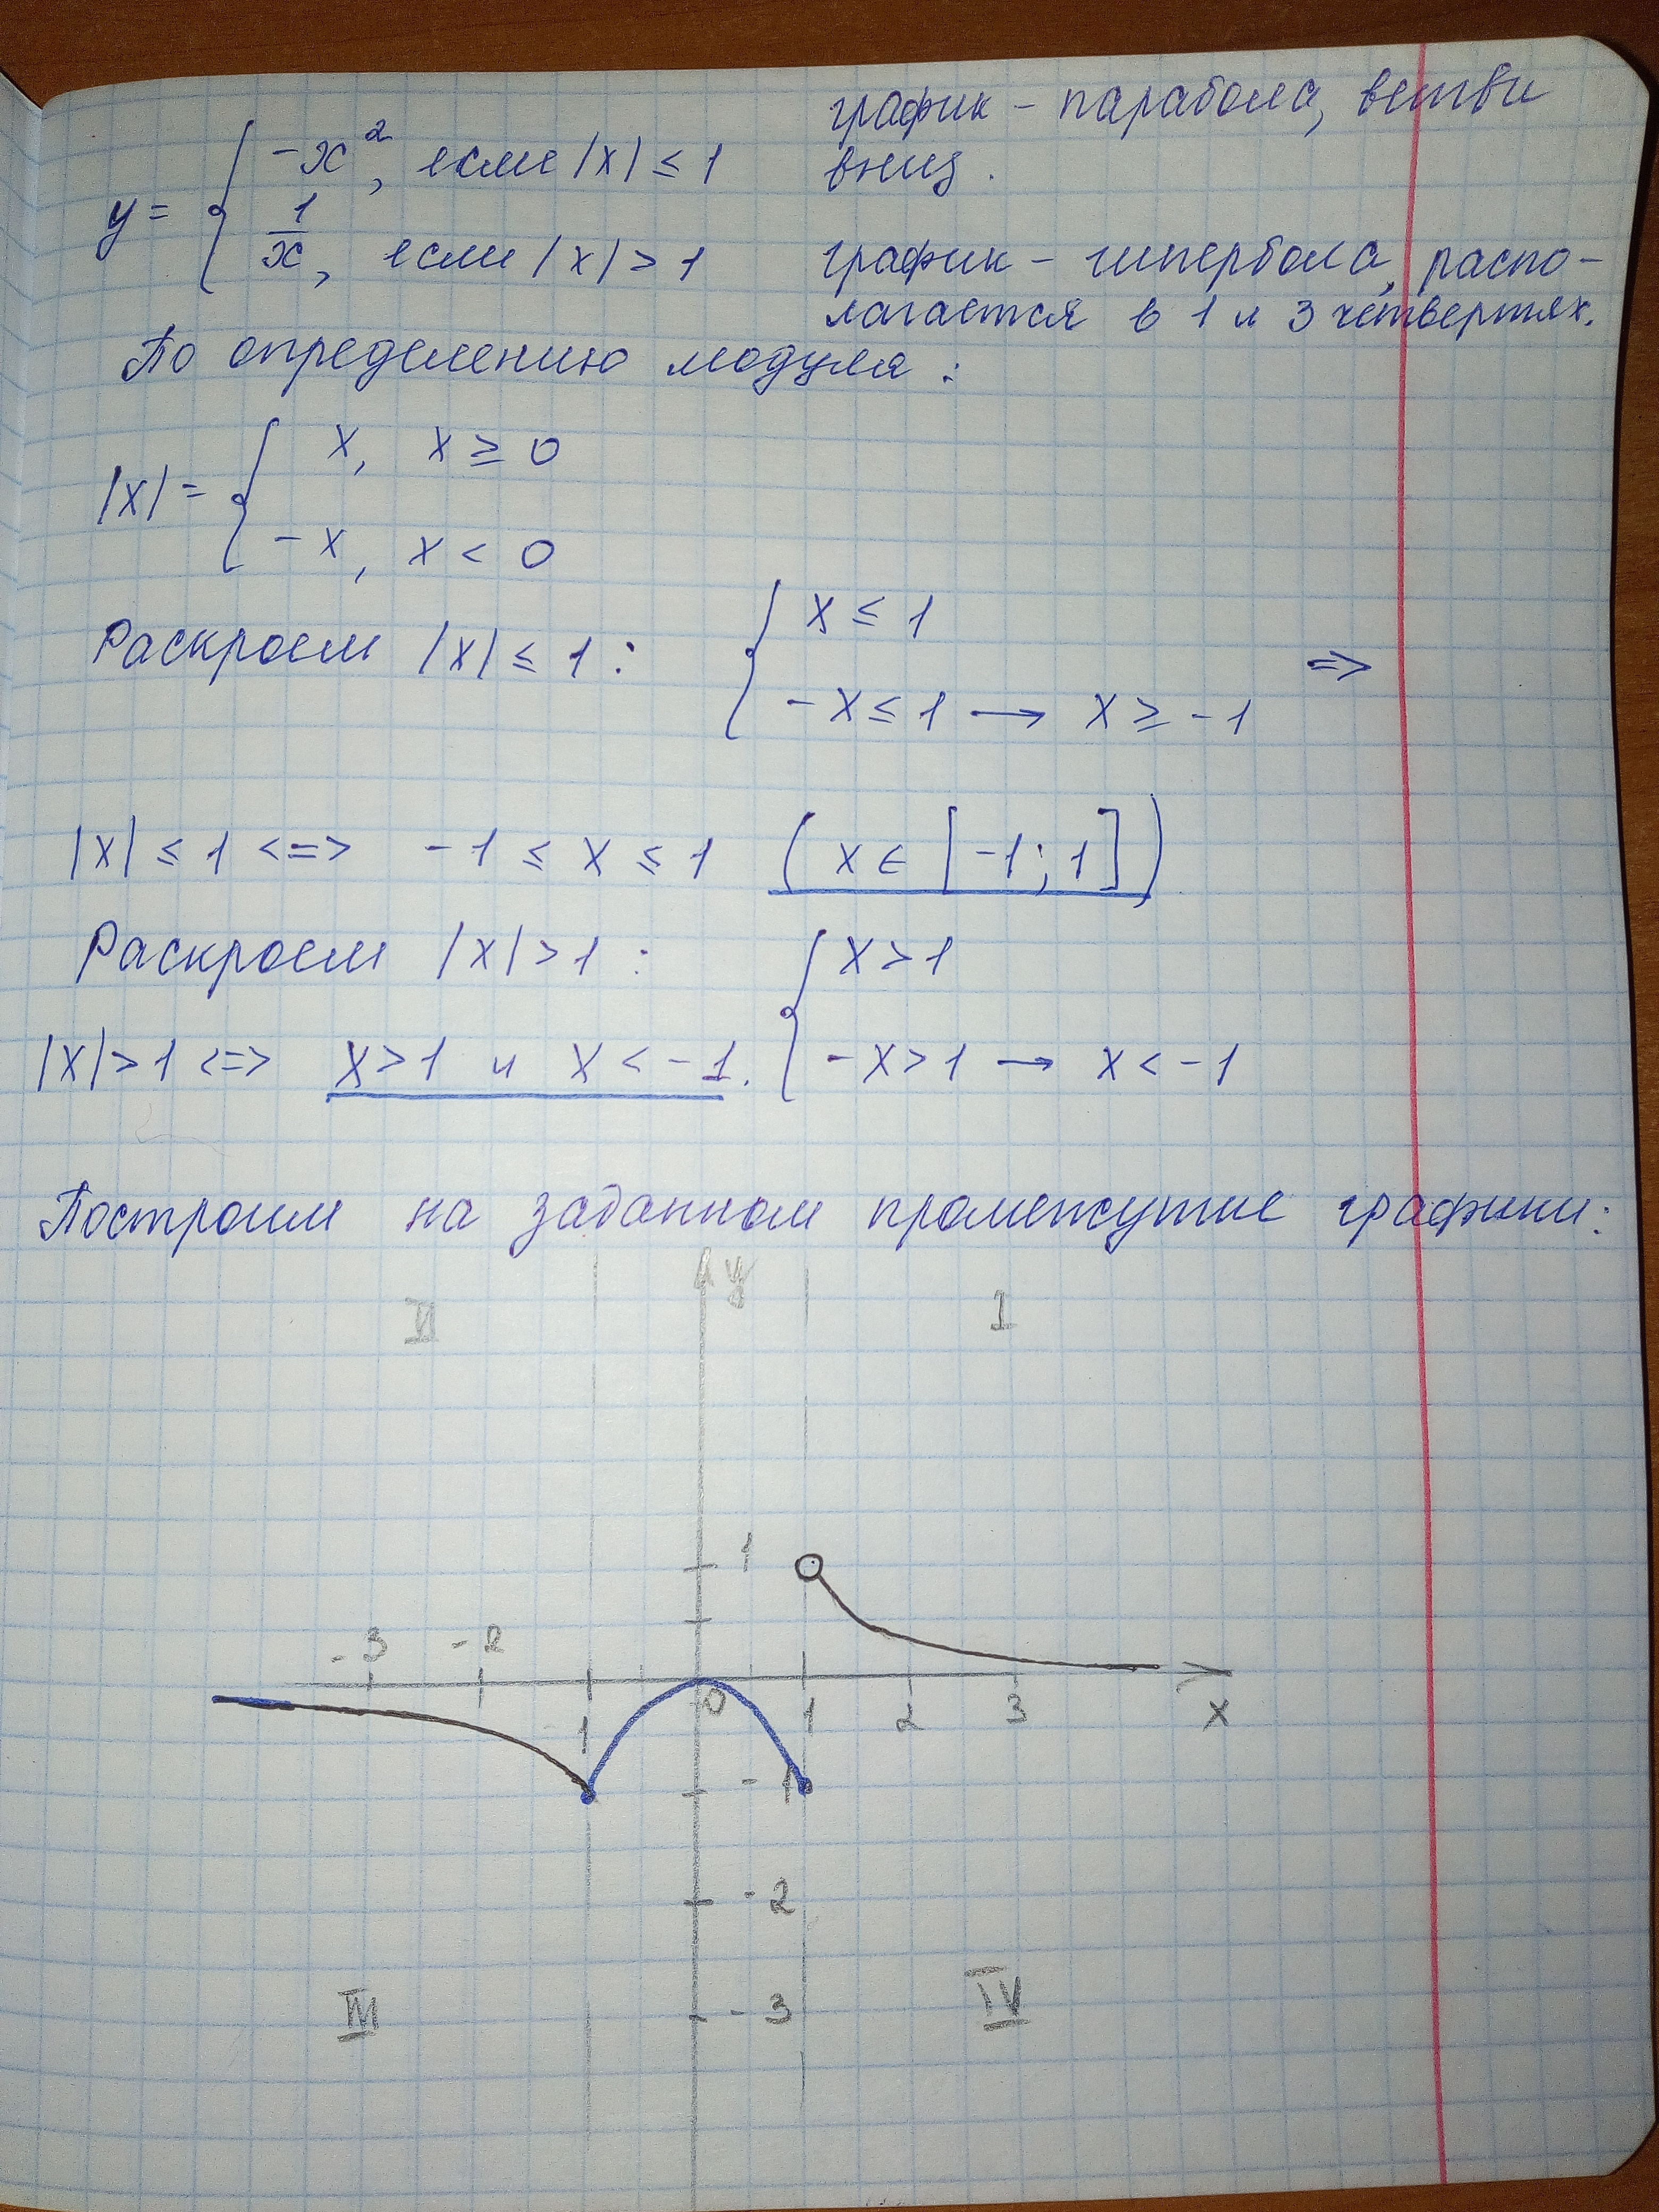 график – парабола, ветви
вниз.
y = { -x², если |x| ≤ 1
1/x, если |x| > 1
график – гипербола, распо-
лагается в 1 и 3 четвертях.
По определению модуля:
|x| = { x, x ≥ 0
-x, x < 0
Раскроем |x| ≤ 1: { x ≤ 1
-x ≤ 1 → x ≥ -1 =>
|x| ≤ 1 <=> -1 ≤ x ≤ 1 (x ∈ [-1; 1])
Раскроем |x| > 1: { x > 1
-x > 1 → x < -1
|x| > 1 <=> x > 1 и x < -1.
Построим на заданном промежутке графики:
y
II I
1
-3 -2 1 0 1 2 3 x
-1
-2
-3
III IV